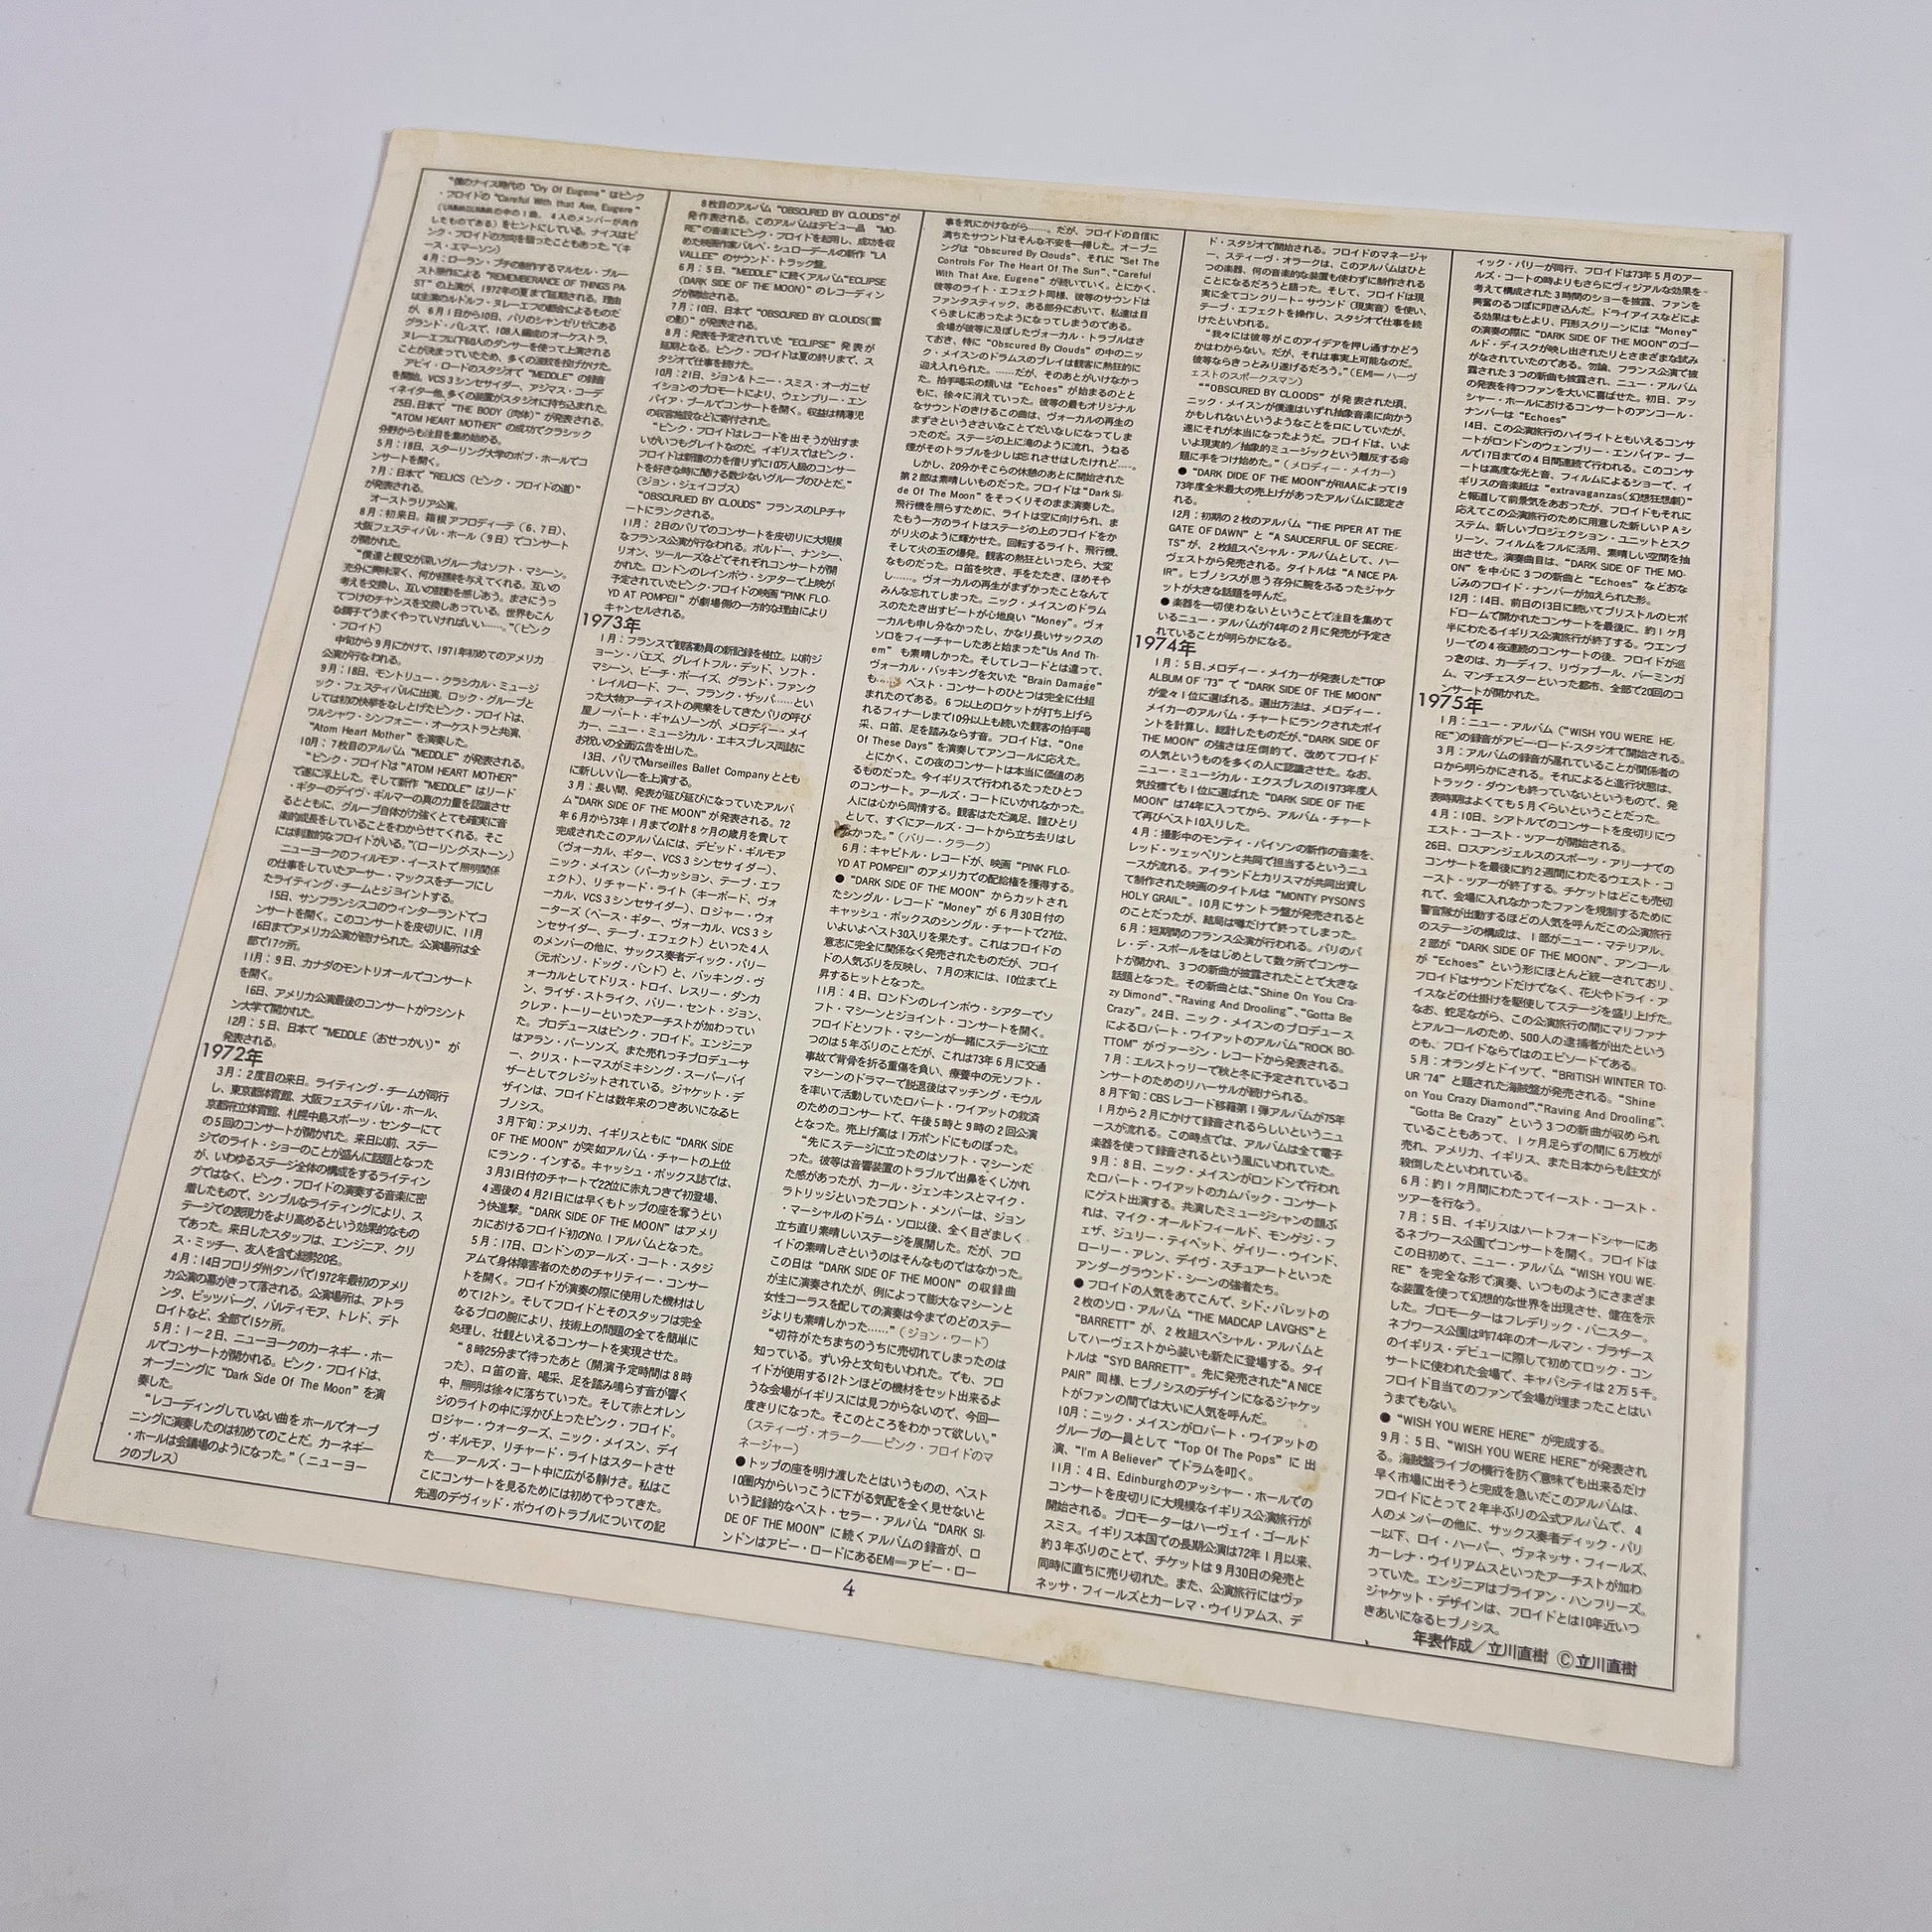 “僕のナイス時代の “Cry Of Eugene” はピンク
・フロイドの “Careful With that Axe, Eugene”
（UMMAGUMMAの中の1曲、4人のメンバーが共作
したものである）をヒントにしている。ナイスはピ
ンク・フロイドの方向を狙ったこともあった。”（キ
ース・エマーソン）
4月：ローラン・プチの制作するマルセル・プルー
スト原作による “REMEMBERANCE OF THINGS PA-
ST” の上演が、1972年の夏まで延期される。理由
は主演のルドルフ・ヌレーエフの都合によるものだ
が、6月1日から10日、パリのシャンゼリゼにある
グランド・パレスで、108人編成のオーケストラ、
ヌレーエフ以下60人のダンサーを使って上演される
ことが決まっていたため、多くの波紋を投げかけた。
アビイ・ロードのスタジオで “MEDDLE” の録音
を開始。VCS3シンセサイダー、アジマス・コーデ
ィネイター他、多くの装置がスタジオに持ち込まれた。
25日、日本で “THE BODY（肉体）” が発表される。
“ATOM HEART MOTHER” の成功でクラシック
分野からも注目を集め始める。
5月：18日、スターリング大学のポブ・ホールでコ
ンサートを開く。
7月：日本で “RELICS（ピンク・フロイドの道）”
が発表される。
オーストラリア公演。
8月：初来日。箱根アフロディーテ（6、7日）、
大阪フェスティバル・ホール（9日）でコンサート
が開かれた。
“僕達と親交が深いグループはソフト・マシーン。
充分に興味深く、何か経験を与えてくれる。互いの
考えを交換し、互いの鼓動を感じあう。まさにうっ
てつけのチャンスを交換しあっている。世界もこん
な調子でうまくやっていければいい……。”（ピンク
・フロイド）
中旬から9月にかけて、1971年初めてのアメリカ
公演が行なわれる。
9月：18日、モントリュー・クラシカル・ミュージ
ック・フェスティバルに出演。ロック・グループと
しては初の快挙をなしとげたピンク・フロイドは、
ワルシャワ・シンフォニー・オーケストラと共演、
“Atom Heart Mother” を演奏した。
10月：7枚目のアルバム “MEDDLE” が発表される。
“ピンク・フロイドは “ATOM HEART MOTHER”
で遂に浮上した。そして新作 “MEDDLE” はリード
・ギターのデイヴ・ギルマーの真の力量を認識させ
るとともに、グループ自体が力強くとても確実に音
楽的成長をしていることをわからせてくれる。そこ
には刺激的なフロイドがいる。”（ローリング・ストーン）
ニューヨークのフィルモア・イーストで照明関係
の仕事をしていたアーサー・マックスをチーフにし
たライティング・チームとジョイントする。
15日、サンフランシスコのウィンターランドでコ
ンサートを開く。このコンサートを皮切りに、11月
16日までアメリカ公演が続けられた。公演場所は全
部で17ヶ所。
11月：9日、カナダのモントリオールでコンサート
を開く。
16日、アメリカ公演最後のコンサートがワシント
ン大学で開かれた。
12月：5日、日本で “MEDDLE（おせっかい）” が
発表される。
1972年
3月：2度目の来日。ライティング・チームが同行
し、東京都体育館、大阪フェスティバル・ホール、
京都府立体育館、札幌中島スポーツ・センターにて
の5回のコンサートが開かれた。来日以前、ステー
ジでのライト・ショーのことが盛んに話題となった
が、いわゆるステージ全体の構成をするライティン
グではなく、ピンク・フロイドの演奏する音楽に密
着したもので、シンプルなライティングにより、ス
テージでの表現力をより高めるという効果的なもの
であった。来日したスタッフは、エンジニア、クリ
ス・ミッチー、友人を含む総勢20名。
4月：14日フロリダ州タンパで1972年最初のアメリ
カ公演の幕がきって落される。公演場所は、アトラ
ンタ、ピッツバーグ、バルティモア、トレド、デト
ロイトなど、全部で15ヶ所。
5月：1－2日、ニューヨークのカーネギー・ホー
ルでコンサートが開かれる。ピンク・フロイドは、
オープニングに “Dark Side Of The Moon” を演
奏した。
“レコーディングしていない曲をホールでオープ
ニングに演奏したのは初めてのことだ。カーネギー
・ホールは会議場のようになった。”（ニューヨー
クのプレス）
8枚目のアルバム “OBSCURED BY CLOUDS”が
発作表される。このアルバムはデビュー品 “MO-
RE”の音楽にピンク・フロイドを起用し、成功を収
めた映画作家バルベ・シュローデールの新作 “LA
VALLEE” のサウンド・トラック盤。
6月：5日、“MEDDLE” に続くアルバム“ECLIPSE
（DARK SIDE OF THE MOON）” のレコーディン
グが開始される。
7月：10日、日本で “OBSCURED BY CLOUDS（雲
の影）” が発表される。
8月：発表を予定されていた “ECLIPSE” 発表が
延期となる。ピンク・フロイドは夏の終りまで、ス
タジオで仕事を続けた。
10月：21日、ジョン&トニー・スミス・オーガニゼ
イションのプロモートにより、ウェンブリー・エン
パイア・プールでコンサートを開く。収益は精薄児
の収容施設などに寄付された。
“ピンク・フロイドはレコードを出そうが出すま
いがいつもグレイトなのだ。イギリスではピンク・
フロイドは新譜の力を借りずに10万人級のコンサー
トを好きな時に開ける数少ないグループのひとだ。”
（ジョン・ジェイコブス）
“OBSCURUED BY CLOUDS” フランスのLPチャ
ートにランクされる。
11月：2日のパリでのコンサートを皮切りに大規模
なフランス公演が行なわれる。ボルドー、ナンシー、
リオン、ツールーズなどでそれぞれコンサートが開
かれた。ロンドンのレインボウ・シアターで上映が
予定されていたピンク・フロイドの映画“PINK FLO-
YD AT POMPEII” が劇場側の一方的な理由により
キャンセルされる。
1973年
1月：フランスで観客動員の新記録を樹立。以前ジ
ョーン・バエズ、グレイトフル・デッド、ソフト・
マシーン、ビーチ・ボーイズ、グランド・ファンク
・レイルロード、フー、フランク・ザッパ……とい
った大物アーティストの興業をしてきたパリの呼び
屋ノーバート・ギャムソーンが、メロディー・メイ
カー、ニュー・ミュージカル・エキスプレス両誌に
お祝いの全面広告を出した。
13日、パリでMarseilles Ballet Companyととも
に新しいバレーを上演する。
3月：長い間、発表が延び延びになっていたアルバ
ム“DARK SIDE OF THE MOON” が発表される。72
年6月から73年1月までの計8ヶ月の歳月を費して
完成されたこのアルバムには、デビッド・ギルモア
（ヴォーカル、ギター、VCS3シンセサイダー）、
ニック・メイスン（パーカッション、テープ・エフ
ェクト）、リチャード・ライト（キーボード、ヴォ
ーカル、VCS3シンセサイダー）、ロジャー・ウォ
ーターズ（ベース・ギター、ヴォーカル、VCS3シ
ンセサイダー、テープ・エフェクト）といった4人
のメンバーの他に、サックス奏者ディック・パリー
（元ボンゾ・ドッグ・バンド）と、バッキング・ヴ
ォーカルとしてドリス・トロイ、レスリー・ダンカ
ン、ライザ・ストライク、バリー・セント・ジョン、
クレア・トーリーといったアーチストが加わってい
た。プロデュースはピンク・フロイド。エンジニア
はアラン・パーソンズ。また売れっ子プロデューサ
ー、クリス・トーマスがミキシング・スーパーバイ
ザーとしてクレジットされている。ジャケット・デ
ザインは、フロイドとは数年来のつきあいになるヒ
プノシス。
3月下旬：アメリカ、イギリスともに “DARK SIDE
OF THE MOON” が突如アルバム・チャートの上位
にランク・インする。キャッシュ・ボックス誌では、
3月31日付のチャートで22位に赤丸つきで初登場、
4週後の4月21日には早くもトップの座を奪うとい
う快進撃。“DARK SIDE OF THE MOON” はアメリ
カにおけるフロイド初のNo.1アルバムとなった。
5月：17日、ロンドンのアールズ・コート・スタジ
アムで身体障害者のためのチャリティー・コンサー
トを開く。フロイドが演奏の際に使用した機材はし
めて12トン。そしてフロイドとそのスタッフは完全
なるプロの腕により、技術上の問題の全てを簡単に
処理し、壮観といえるコンサートを実現させた。
“8時25分まで待ったあと（開演予定時間は8時
った）、口笛の音、喝采、足を踏み鳴らす音が響く
中、照明は徐々に落ちていった。そして赤とオレン
ジのライトの中に浮かび上ったピンク・フロイド。
ロジャー・ウォーターズ、ニック・メイスン、デイ
ヴ・ギルモア、リチャード・ライトはスタートさせ
た――アールズ・コート中に広がる静けさ。私はこ
こにコンサートを見るためには初めてやってきた。
先週のデヴィッド・ボウイのトラブルについての記
事を気にかけながら……。だが、フロイドの自信に
満ちたサウンドはそんな不安を一掃した。オープニ
ングは “Obscured By Clouds”、それに “Set The
Controls For The Heart Of The Sun”、“Careful
With That Axe, Eugene” が続いていく。とにかく、
彼等のライト・エフェクト同様、彼等のサウンドは
ファンタスティック、ある部分において、私達は目
くらましにあったようになってしまうのである。
会場が彼等に及ぼしたヴォーカル・トラブルはさ
ておき、特に “Obscured By Clouds” の中のニッ
ク・メイスンのドラムスのプレイは観客に熱狂的に
迎え入れられた。……だが、そのあとがいけなかっ
た。拍手喝采の類いは “Echoes” が始まるのとと
もに、徐々に消えていった。彼等の最もオリジナル
なサウンドのきけるこの曲は、ヴォーカルの再生の
まずさというささいなことでだいなしになってしま
ったのだ。ステージの上に滝のように流れ、うねる
煙がそのトラブルを少しは忘れさせはしたけれど……。
しかし、20分かそこらの休憩のあとに開始された
第2部は素晴しいものだった。フロイドは “Dark Si-
de Of The Moon” をそっくりそのまま演奏した。
飛行機を照らすために、ライトは空に向けられ、ま
たもう一方のライトはステージの上のフロイドをか
がり火のように輝かせた。回転するライト、飛行機、
そして火の玉の爆発。観客の熱狂といったら、大変
なものだった。口笛を吹き、手をたたき、ほめそや
し……。ヴォーカルの再生がまずかったことなんて
みんな忘れてしまった。ニック・メイスンのドラム
スのたたき出すビートが心地良い “Money”。ヴォ
ーカルも申し分なかったし、かなり長いサックスの
ソロをフィーチャーしたあと始まった“Us And Th-
em” も素晴しかった。そしてレコードとは違って、
ヴォーカル・バッキングを欠いた “Brain Damage”
も……。ベスト・コンサートのひとつは完全に仕組
まれたのである。6つ以上のロケットが打ち上げら
れるフィナーレまで10分以上も続いた観客の拍手喝
采、口笛、足を踏みならす音。フロイドは、“One
Of These Days” を演奏してアンコールに応えた。
とにかく、この夜のコンサートは本当に価値のあ
るものだった。今イギリスで行われるたったひとつ
のコンサート。アールズ・コートにいかれなかった
人には心から同情する。観客はただ満足、誰ひとり
として、すぐにアールズ・コートから立ち去りはし
なかった。”（バリー・クラーク）
6月：キャピトル・レコードが、映画 “PINK FLO-
YD AT POMPEII” のアメリカでの配給権を獲得する。
●“DARK SIDE OF THE MOON” からカットされ
たシングル・レコード “Money” が6月30日付の
キャッシュ・ボックスのシングル・チャートで27位、
いよいよベスト30入りを果たす。これはフロイドの
意志に完全に関係なく発売されたものだが、フロイ
ドの人気ぶりを反映し、7月の末には、10位まで上
昇するヒットとなった。
11月：4日、ロンドンのレインボウ・シアターでソ
フト・マシーンとジョイント・コンサートを開く。
フロイドとソフト・マシーンが一緒にステージに立
つのは5年ぶりのことだが、これは73年6月に交通
事故で背骨を折る重傷を負い、療養中の元ソフト・
マシーンのドラマーで脱退後はマッチング・モウル
を率いて活動していたロバート・ワイアットの救済
のためのコンサートで、午後5時と9時の2回公演
となった。売上げ高は1万ポンドにものぼった。
“先にステージに立ったのはソフト・マシーンだ
った。彼等は音響装置のトラブルで出鼻をくじかれ
た感があったが、カール・ジェンキンスとマイク・
ラトリッジといったフロント・メンバーは、ジョン
・マーシャルのドラム・ソロ以後、全く目ざましく
立ち直り素晴しいステージを展開した。だが、フロ
イドの素晴しさというのはそんなものではなかった。
この日は “DARK SIDE OF THE MOON” の収録曲
が主に演奏されたが、例によって膨大なマシーンと
女性コーラスを配しての演奏は今までのどのステー
ジよりも素晴しかった……”（ジョン・ワード）
“切符がたちまちのうちに売切れてしまったのは
知っている。ずい分と文句もいわれた。でも、フロ
イドが使用する12トンほどの機材をセット出来るよ
うな会場がイギリスには見つからないので、今回一
度きりになった。そこのところをわかって欲しい。”
（スティーヴ・オラーク――ピンク・フロイドのマ
ネージャー）
●トップの座を明け渡したとはいうものの、ベスト
10圏内からいっこうに下がる気配を全く見せないと
いう記録的なベスト・セラー・アルバム “DARK SI-
DE OF THE MOON” に続くアルバムの録音が、ロ
ンドンはアビー・ロードにあるEMI＝アビー・ロー
ド・スタジオで開始される。フロイドのマネージャ
ー、スティーヴ・オラークは、このアルバムはひと
つの楽器、何の音楽的な装置も使わずに制作される
ことになるだろうと語った。そして、フロイドは現
実に全てコンクリート・サウンド（現実音）を使い、
テープ・エフェクトを操作し、スタジオで仕事を続
けたといわれる。
“我々には彼等がこのアイデアを押し通すかどう
かはわからない。だが、それは事実上可能なのだ。
彼等ならきっとみり遂げるだろう。”（EMI＝ハーヴ
ェストのスポークスマン）
““OBSCURED BY CLOODS” が発表された頃、
ニック・メイスンが僕達はいずれ抽象音楽に向かう
かもしれないというようなことを口にしていたが、
遂にそれが本当になったようだ。フロイドは、いよ
いよ現実的／抽象的ミュージックという離反する命
題に手をつけ始めた。”（メロディー・メイカー）
●“DARK DIDE OF THE MOON”がRIAAによって19
73年度全米最大の売上げがあったアルバムに認定さ
れる。
12月：初期の2枚のアルバム “THE PIPER AT THE
GATE OF DAWN” と “A SAUCERFUL OF SECRE-
TS” が、2枚組スペシャル・アルバムとして、ハー
ヴェストから発売される。タイトルは “A NICE PA-
IR”。ヒプノシスが思う存分に腕をふるったジャケ
ットが大きな話題を呼んだ。
●楽器を一切使わないということで注目を集めて
いるニュー・アルバムが74年の2月に発売が予定さ
れていることが明らかになる。
1974年
1月：5日、メロディー・メイカーが発表した“TOP
ALBUM OF ’73” で “DARK SIDE OF THE MOON”
が堂々1位に選ばれる。選出方法は、メロディー・
メイカーのアルバム・チャートにランクされたポイ
ントを計算し、総計したものだが、“DARK SIDE OF
THE MOON” の強さは圧倒的で、改めてフロイド
の人気というものを多くの人に認識させた。なお、
ニュー・ミュージカル・エクスプレスの1973年度人
気投標でも1位に選ばれた “DARK SIDE OF THE
MOON” は74年に入ってから、アルバム・チャート
で再びベスト10入りした。
4月：撮影中のモンティ・パイソンの新作の音楽を、
レッド・ツェッペリンと共同で担当するというニュ
ースが流れる。アイランドとカリスマが共同出資し
て制作された映画のタイトルは “MONTY PYSON’S
HOLY GRAIL”。10月にサントラ盤が発売されると
のことだったが、結局は噂だけで終ってしまった。
6月：短期間のフランス公演が行われる。パリのパ
レ・デ・スポールをはじめとして数ヶ所でコンサー
トが開かれ、3つの新曲が披露されたことで大きな
話題となった。その新曲とは、“Shine On You Cra-
zy Dimond”、“Raving And Drooling”、“Gotta Be
Crazy”。24日、ニック・メイスンのプロデュース
によるロバート・ワイアットのアルバム“ROCK BO-
TTOM” がヴァージン・レコードから発表される。
7月：エルストゥリーで秋と冬に予定されているコ
ンサートのためのリハーサルが続けられる。
8月下旬：CBSレコード移籍第1弾アルバムが75年
1月から2月にかけて録音されるらしいというニュ
ースが流れる。この時点では、アルバムは全て電子
楽器を使って録音されるという風にいわれていた。
9月：8日、ニック・メイスンがロンドンで行われ
たロバート・ワイアットのカムバック・コンサート
にゲスト出演する。共演したミュージシャンの顔ぶ
れは、マイク・オールドフィールド、モンゲジ・フ
ェザ、ジュリー・ティペット、ゲイリー・ウインド、
ローリー・アレン、デイヴ・スチュアートといった
アンダーグラウンド・シーンの強者たち。
●フロイドの人気をあてこんで、シド・バレットの
2枚のソロ・アルバム “THE MADCAP LAVGHS” と
“BARRETT” が、2枚組スペシャル・アルバムと
してハーヴェストから装いも新たに登場する。タイ
トルは “SYD BARRETT”。先に発売された“A NICE
PAIR” 同様、ヒプノシスのデザインになるジャケッ
トがファンの間では大いに人気を呼んだ。
10月：ニック・メイスンがロバート・ワイアットの
グループの一員として “Top Of The Pops” に出
演、“I’m A Believer” でドラムを叩く。
11月：4日、Edinburghのアッシャー・ホールでの
コンサートを皮切りに大規模なイギリス公演旅行が
開始される。プロモーターはハーヴェイ・ゴールド
スミス。イギリス本国での長期公演は72年1月以来、
約3年ぶりのことで、チケットは9月30日の発売と
同時に直ちに売り切れた。また、公演旅行にはヴァ
ネッサ・フィールズとカーレマ・ウイリアムス、デ
ィック・パリーが同行、フロイドは73年5月のアー
ルズ・コートの時よりもさらにヴィジアルな効果を
考えて構成された3時間のショーを披露、ファンを
興奮のるつぼに叩き込んだ。ドライアイスなどによ
る効果はもとより、円形スクリーンには “Money”
の演奏の際に “DARK SIDE OF THE MOON”のゴー
ルド・ディスクが映し出されたりとさまざまな試み
がなされていたのである。勿論、フランス公演で披
露された3つの新曲も披露され、ニュー・アルバム
の発表を待つファンを大いに喜ばせた。初日、アッ
シャー・ホールにおけるコンサートのアンコール・
ナンバーは “Echoes”
14日、この公演旅行のハイライトともいえるコンサ
ートがロンドンのウェンブリー・エンパイアー・プー
ルで17日までの4日間連続で行われる。このコンサ
ートは高度な光と音、フィルムによるショーで、イ
ギリスの音楽紙は “extravaganzas（幻想狂想劇）”
と報道して前景気をあおったが、フロイドもそれに
応えてこの公演旅行のために用意した新しいPAシ
ステム、新しいプロジェクション・ユニットとスク
リーン、フィルムをフルに活用、素晴しい空間を抽
出させた。演奏曲目は、“DARK SIDE OF THE MO-
ON” を中心に3つの新曲と “Echoes” などおな
じみのフロイド・ナンバーが加えられた形。
12月：14日、前日の13日に続いてブリストルのヒポ
ドロームで開かれたコンサートを最後に、約1ヶ月
半にわたるイギリス公演旅行が終了する。ウエンブ
リーでの4夜連続のコンサートの後、フロイドが巡
ったのは、カーディフ、リヴァプール、バーミンガ
ム、マンチェスターといった都市、全部で20回のコ
ンサートが開かれた。
1975年
1月：ニュー・アルバム（“WISH YOU WERE HE-
RE”）の録音がアビー・ロード・スタジオで開始される。
3月：アルバムの録音が遅れていることが関係者の
口から明らかにされる。それによると進行状態は、
トラック・ダウンも終っていないというもので、発
表時期はよくても5月ぐらいということだった。
4月：10日、シアトルでのコンサートを皮切りにウ
エスト・コースト・ツアーが開始される。
26日、ロスアンジェルスのスポーツ・アリーナでの
コンサートを最後に約2週間にわたるウエスト・コ
ースト・ツアーが終了する。チケットはどこも売切
れて、会場に入れなかったファンを規制するために
警官隊が出動するほどの人気を呼んだこの公演旅行
のステージの構成は、1部がニュー・マテリアル、
2部が “DARK SIDE OF THE MOON”、アンコール
が “Echoes” という形にほとんど統一されており、
フロイドはサウンドだけでなく、花火やドライ・ア
イスなどの仕掛けを駆使してステージを盛り上げた。
なお、蛇足ながら、この公演旅行の間にマリファナ
とアルコールのため、500人の逮捕者が出たという
のも、フロイドならではのエピソードである。
5月：オランダとドイツで、“BRITISH WINTER TO-
UR ’74” と題された海賊盤が発売される。“Shine
on You Crazy Diamond”、“Raving And Drooling”、
“Gotta Be Crazy” という3つの新曲が収められ
ていることもあって、1ヶ月足らずの間に6万枚が
売れ、アメリカ、イギリス、また日本からも註文が
殺倒したといわれている。
6月：約1ヶ月間にわたってイースト・コースト・
ツアーを行なう。
7月：5日、イギリスはハートフォードシャーにあ
るネブワース公園でコンサートを開く。フロイドは
この日初めて、ニュー・アルバム “WISH YOU WE-
RE” を完全な形で演奏、いつものようにさまざま
な装置を使って幻想的な世界を出現させ、健在を示
した。プロモーターはフレデリック・バニスター。
ネブワース公園は昨74年のオールマン・ブラザース
のイギリス・デビューに際して初めてロック・コン
サートに使われた会場で、キャパシティは2万5千。
フロイド目当てのファンで会場が埋まったことはい
うまでもない。
●“WISH YOU WERE HERE” が完成する。
9月：5日、“WISH YOU WERE HERE”が発表され
る。海賊盤ライブの横行を防ぐ意味でも出来るだけ
早く市場に出そうと完成を急いだこのアルバムは、
フロイドにとって2年半ぶりの公式アルバムで、4
人のメンバーの他に、サックス奏者ディック・パリ
ー以下、ロイ・ハーパー、ヴァネッサ・フィールズ、
カーレナ・ウイリアムスといったアーチストが加わ
っていた。エンジニアはブライアン・ハンフリーズ。
ジャケット・デザインは、フロイドとは10年近いつ
きあいになるヒプノシス。
年表作成／立川直樹 ©立川直樹
4